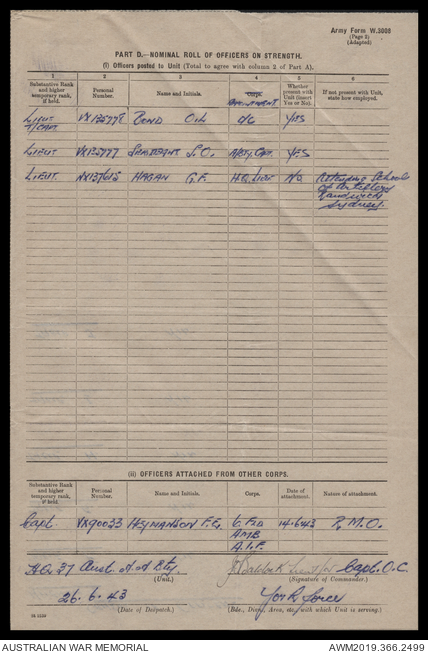 Army Form W.3008
(Page 2)
(Adapted)
PART D.—NOMINAL ROLL OF OFFICERS ON STRENGTH.
(i) Officers posted to Unit (Total to agree with column 2 of Part A).
1 2 3 4 5 6
Substantive Rank and higher temporary rank, if held. Personal Number. Name and Initials. Corps. Whether present with Unit (insert Yes or No). If not present with Unit, state how employed.
LIEUT VX135778 BOND O/C YES
T/CAPT
LIEUT VX135777 S.O. YES
LIEUT NX137615 HAGAN G.F. H.Q. NO Attending School
of Artillery
Randwick
Sydney.
(ii) OFFICERS ATTACHED FROM OTHER CORPS.
Substantive Rank and higher temporary rank, if held. Personal Number. Name and Initials. Corps. Date of attachment. Nature of attachment.
Capt. VX90033 HEYMANSON F.G. 6 FLD 14.6.43 R.M.O.
AMB
A.I.F.
H.Q. 37 Aust. A A Bty. Capt. O.C.
(Unit.) (Signature of Commander.)
26.6.43 York Force
(Date of Despatch.) (Bde., Div., Area, etc., with which Unit is serving.)
AUSTRALIAN WAR MEMORIAL AWM2019.366.2499